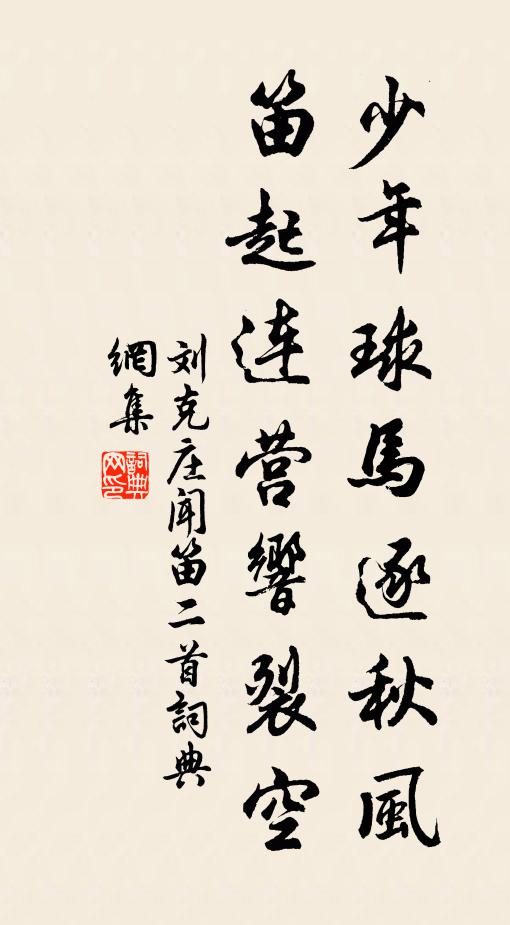 少年球馬逐秋風
笛起连营響裂空
刘克庄闻笛二首詞典
網集
詞典
网印